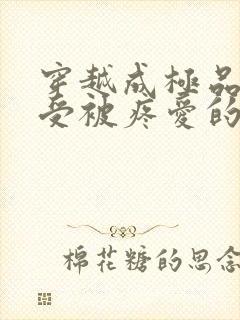 穿越成極品
受被疼愛的
棉花糖的思念